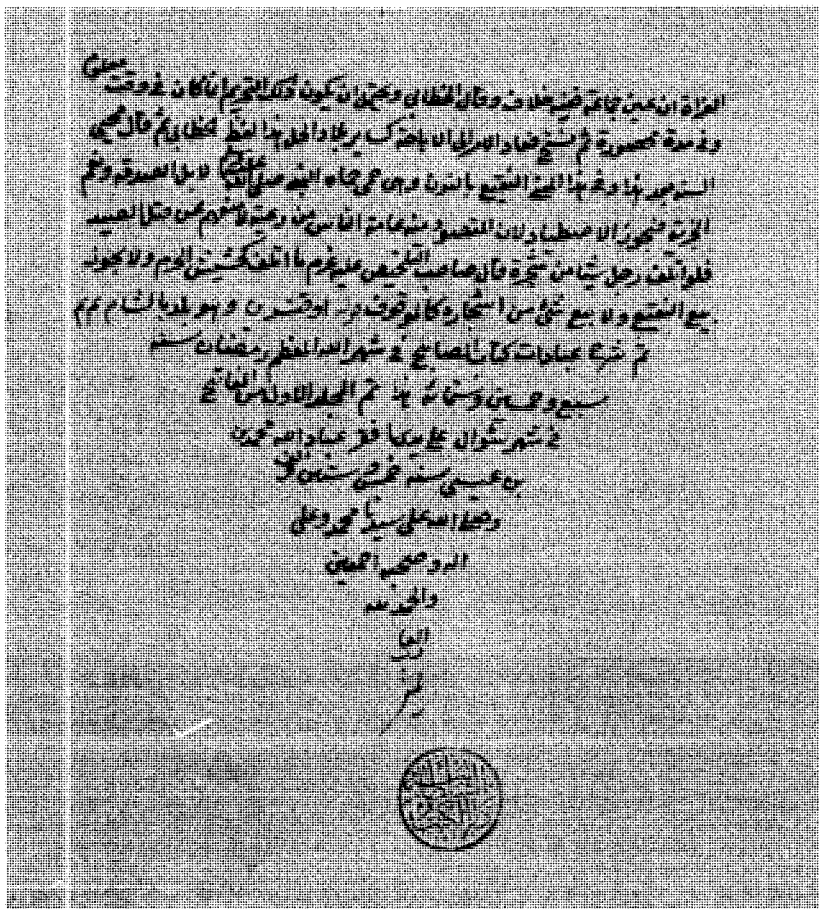 الغزاة ان عين جماعة ففيه خلاف وقال الخطابي ويحتمل ان يكون ذلك التحريم انما كان في وقت معلوم
وفي مدة محصورة ثم نسخ فعاد الامر الى الاباحة كسائر بلاد الحل هذا لفظ الخطابي ثم قال محيي
السنة بعد هذا وفي هذا المعنى النقيع بالنون وهي حمى حماه النبي صلى الله عليه لابل الصدقة ونعم
الجزية فيجوز الاصطياد لان المقصود منه عامة الناس من رعيه لا منعهم عن قتل الصيد
فلو اتلف رجل شيئا من شجره قال صاحب التلخيص عليه غرم ما اتلف كحشيش الحرم ولا يجوز
بيع النقيع ولا بيع شئ من اشجاره كالموقوف وهو بلد بالشام
تم شرح عبادات كتاب المصابيح في شهر الله المعظم رمضان سنة
سبع وخمسين وستمائة هذا تم المجلد الاول من المفاتيح
في شهر شوال على يد افقر عباد الله محمد بن
بن عيسى سنة
وصلى الله على سيدنا محمد وعلى
اله وصحبه اجمعين
والحمد لله
العا
لمين